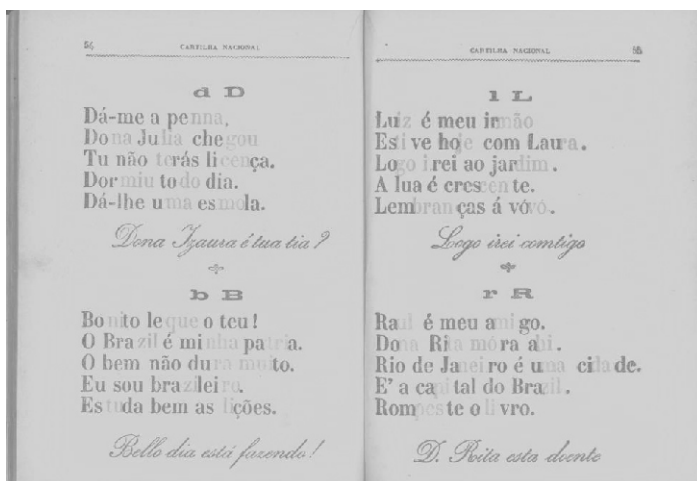 54
CARTILHA NACIONAL
d D
Dá-me a penna,
Dona Julia chegou
Tu não terás licença.
Dormiu todo dia.
Dá-lhe uma esmola.
Dona Izaura é tua tia?
b B
Bonito leque o teu!
O Brazil é minha patria.
O bem não dura muito.
Eu sou brazileiro.
Estuda bem as lições.
Bello dia está fazendo!
CARTILHA NACIONAL
55
l L
Luiz é meu irmão
Estive hoje com Laura.
Logo irei ao jardim.
A lua é crescente.
Lembranças á vóvó.
Logo irei comtigo
r R
Raul é meu amigo.
Dona Rita móra ahi.
Rio de Janeiro é uma cidade.
E' a capital do Brazil.
Rompeste o livro.
D. Rita esta doente